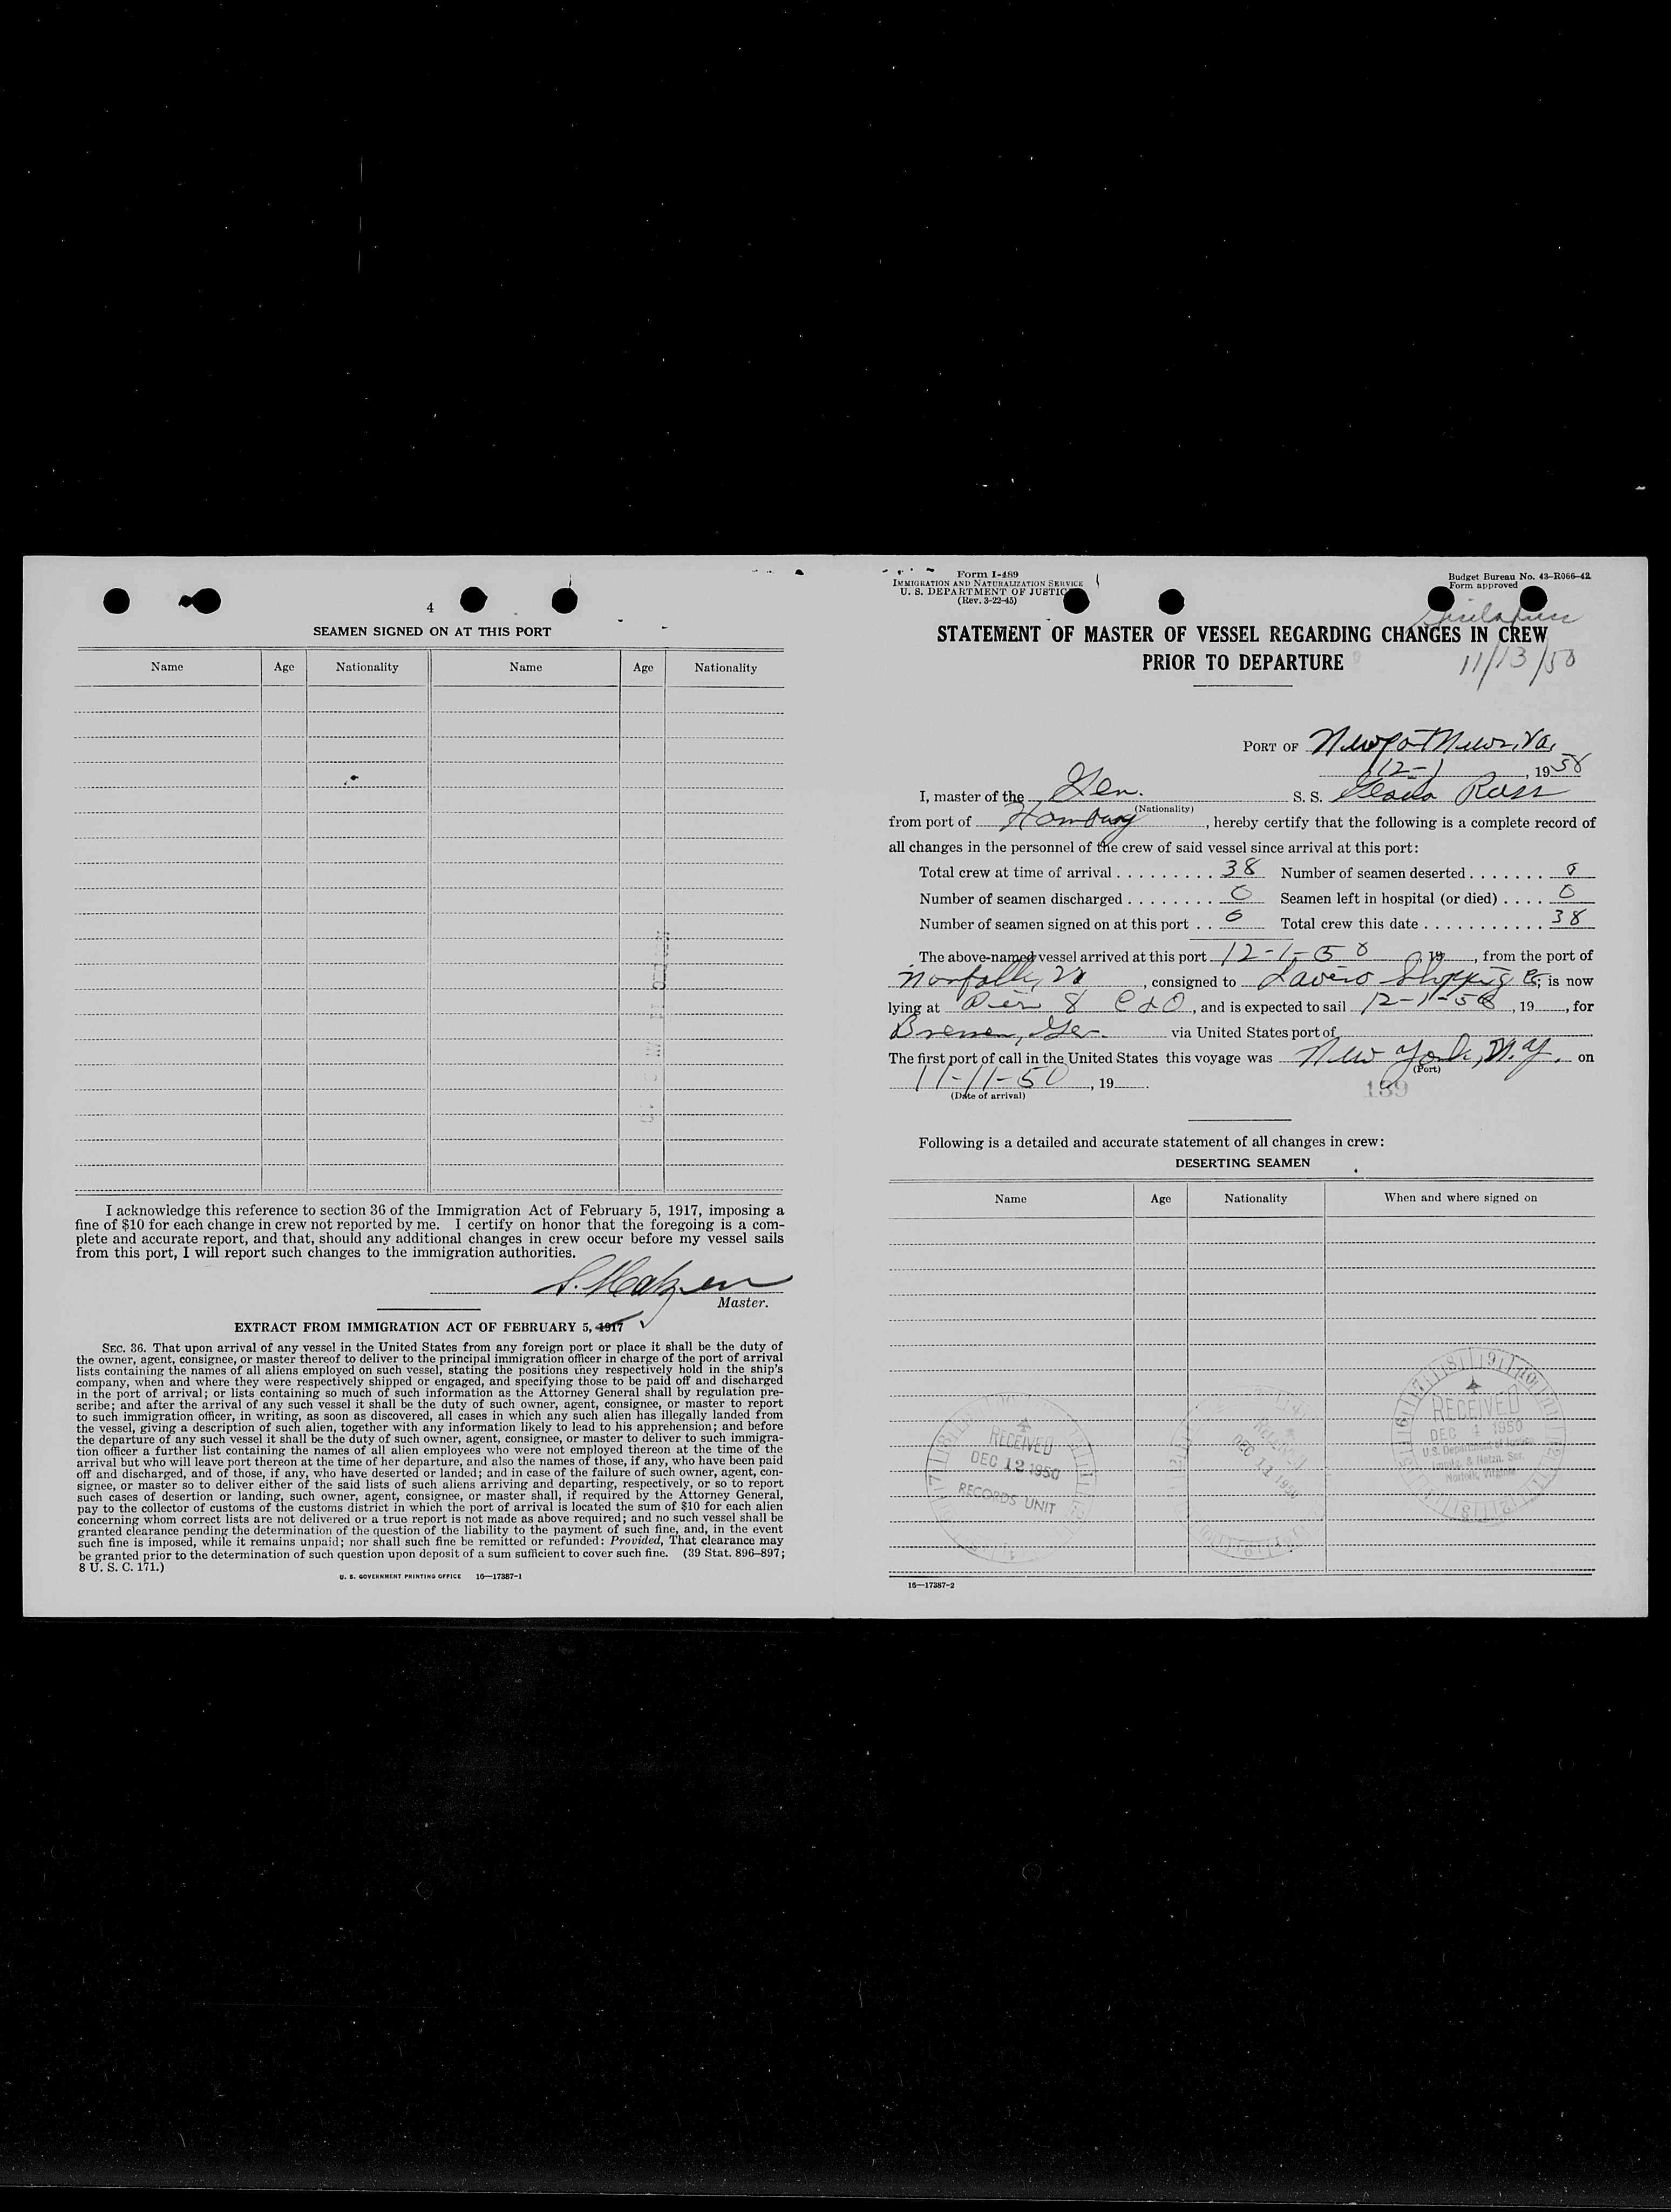 4
SEAMEN SIGNED ON AT THIS PORT
Name Age Nationality Name Age Nationality
I acknowledge this reference to section 36 of the Immigration Act of February 5, 1917, imposing a
fine of $10 for each change in crew not reported by me. I certify on honor that the foregoing is a com-
plete and accurate report, and that, should any additional changes in crew occur before my vessel sails
from this port, I will report such changes to the immigration authorities.
Master.
EXTRACT FROM IMMIGRATION ACT OF FEBRUARY 5, 1917
SEC. 36. That upon arrival of any vessel in the United States from any foreign port or place it shall be the duty of
the owner, agent, consignee, or master thereof to deliver to the principal immigration officer in charge of the port of arrival
lists containing the names of all aliens employed on such vessel, stating the positions they respectively hold in the ship's
company, when and where they were respectively shipped or engaged, and specifying those to be paid off and discharged
in the port of arrival; or lists containing so much of such information as the Attorney General shall by regulation pre-
scribe; and after the arrival of any such vessel it shall be the duty of such owner, agent, consignee, or master to report
to such immigration officer, in writing, as soon as discovered, all cases in which any such alien has illegally landed from
the vessel, giving a description of such alien, together with any information likely to lead to his apprehension; and before
the departure of any such vessel it shall be the duty of such owner, agent, consignee, or master to deliver to such immigra-
tion officer a further list containing the names of all alien employees who were not employed thereon at the time of the
arrival but who will leave port thereon at the time of her departure, and also the names of those, if any, who have been paid
off and discharged, and of those, if any, who have deserted or landed; and in case of the failure of such owner, agent, con-
signee, or master so to deliver either of the said lists of such aliens arriving and departing, respectively, or so to report
such cases of desertion or landing, such owner, agent, consignee, or master shall, if required by the Attorney General,
pay to the collector of customs of the customs district in which the port of arrival is located the sum of $10 for each alien
concerning whom correct lists are not delivered or a true report is not made as above required; and no such vessel shall be
granted clearance pending the determination of the question of the liability to the payment of such fine, and, in the event
such fine is imposed, while it remains unpaid; nor shall such fine be remitted or refunded: Provided, That clearance may
be granted prior to the determination of such question upon deposit of a sum sufficient to cover such fine. (39 Stat. 896–897;
8 U. S. C. 171.)
U. S. GOVERNMENT PRINTING OFFICE 16—17387-1
Form I-489
IMMIGRATION AND NATURALIZATION SERVICE
U. S. DEPARTMENT OF JUSTIC
(Rev. 3-22-45)
Budget Bureau No. 43–R066–42
Form approved
STATEMENT OF MASTER OF VESSEL REGARDING CHANGES IN CREW
PRIOR TO DEPARTURE
11/13/50
PORT OF Newport News, Va.
12-1, 1950
I, master of the Ger. S. S. Ross
(Nationality)
from port of Hamburg, hereby certify that the following is a complete record of
all changes in the personnel of the crew of said vessel since arrival at this port:
Total crew at time of arrival . . . . . . . . . 38 Number of seamen deserted . . . . . . . 0
Number of seamen discharged . . . . . . . . 0 Seamen left in hospital (or died) . . . . 0
Number of seamen signed on at this port . . 0 Total crew this date . . . . . . . . . . . 38
The above-named vessel arrived at this port 12-1-50, 19, from the port of
Norfolk, Va, consigned to Lavino Shipping Co; is now
lying at Pier 8 C&O, and is expected to sail 12-1-50, 19, for
Bremen, Ger. via United States port of
The first port of call in the United States this voyage was New York, N.Y. on
(Port)
11-11-50, 19.
(Date of arrival)
139
Following is a detailed and accurate statement of all changes in crew:
DESERTING SEAMEN
Name Age Nationality When and where signed on
RECEIVED
DEC 12 1950
RECORDS UNIT
RECEIVED
DEC 11 1950
RECEIVED
DEC 4 1950
U.S. Department of Justice
Immig. & Natzn. Ser.
Norfolk, Virginia
16—17387-2